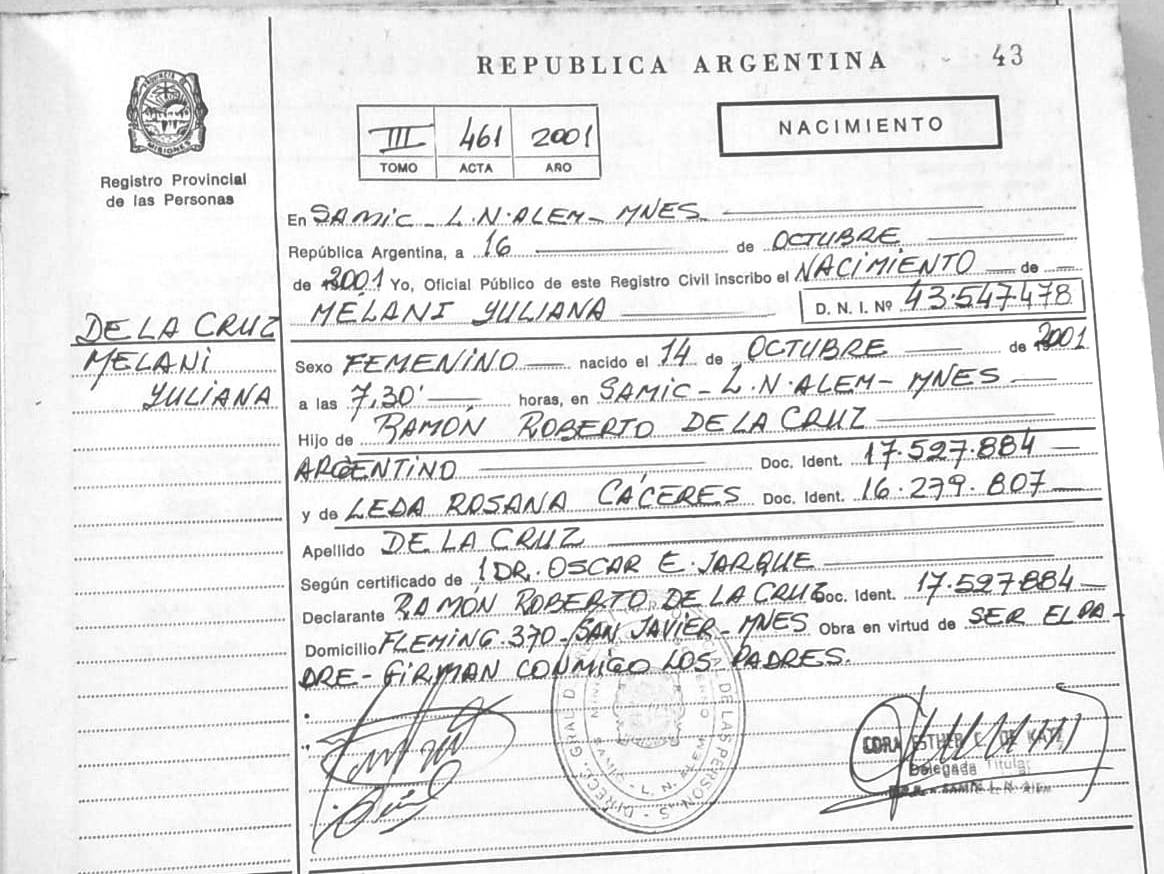 REPUBLICA ARGENTINA 43
MISIONES
Registro Provincial
de las Personas
III 461 2001
TOMO ACTA AÑO
NACIMIENTO
En SAMIC - L.N. ALEM - MNES
República Argentina, a 16 de OCTUBRE
de 2001 Yo, Oficial Público de este Registro Civil Inscribo el NACIMIENTO de
MELANI YULIANA D. N. I. Nº 43.547.478
DE LA CRUZ
MELANI
YULIANA
Sexo FEMENINO nacido el 14 de OCTUBRE de 2001
a las 7,30' horas, en SAMIC - L.N. ALEM - MNES
Hijo de RAMÓN ROBERTO DE LA CRUZ
ARGENTINO Doc. Ident. 17.527.884
y de LEDA ROSANA CÁCERES Doc. Ident. 16.279.807
Apellido DE LA CRUZ
Según certificado de DR. OSCAR E. JARQUE
Declarante RAMÓN ROBERTO DE LA CRUZ Doc. Ident. 17.527.884
Domicilio FLEMING 370 - SAN JAVIER - MNES Obra en virtud de SER EL PA-
DRE - FIRMAN CONMIGO LOS PADRES.
DE LAS PERSON
SAMIC - L. N. ALEM
ESTHER C. DE
Delegada Titular